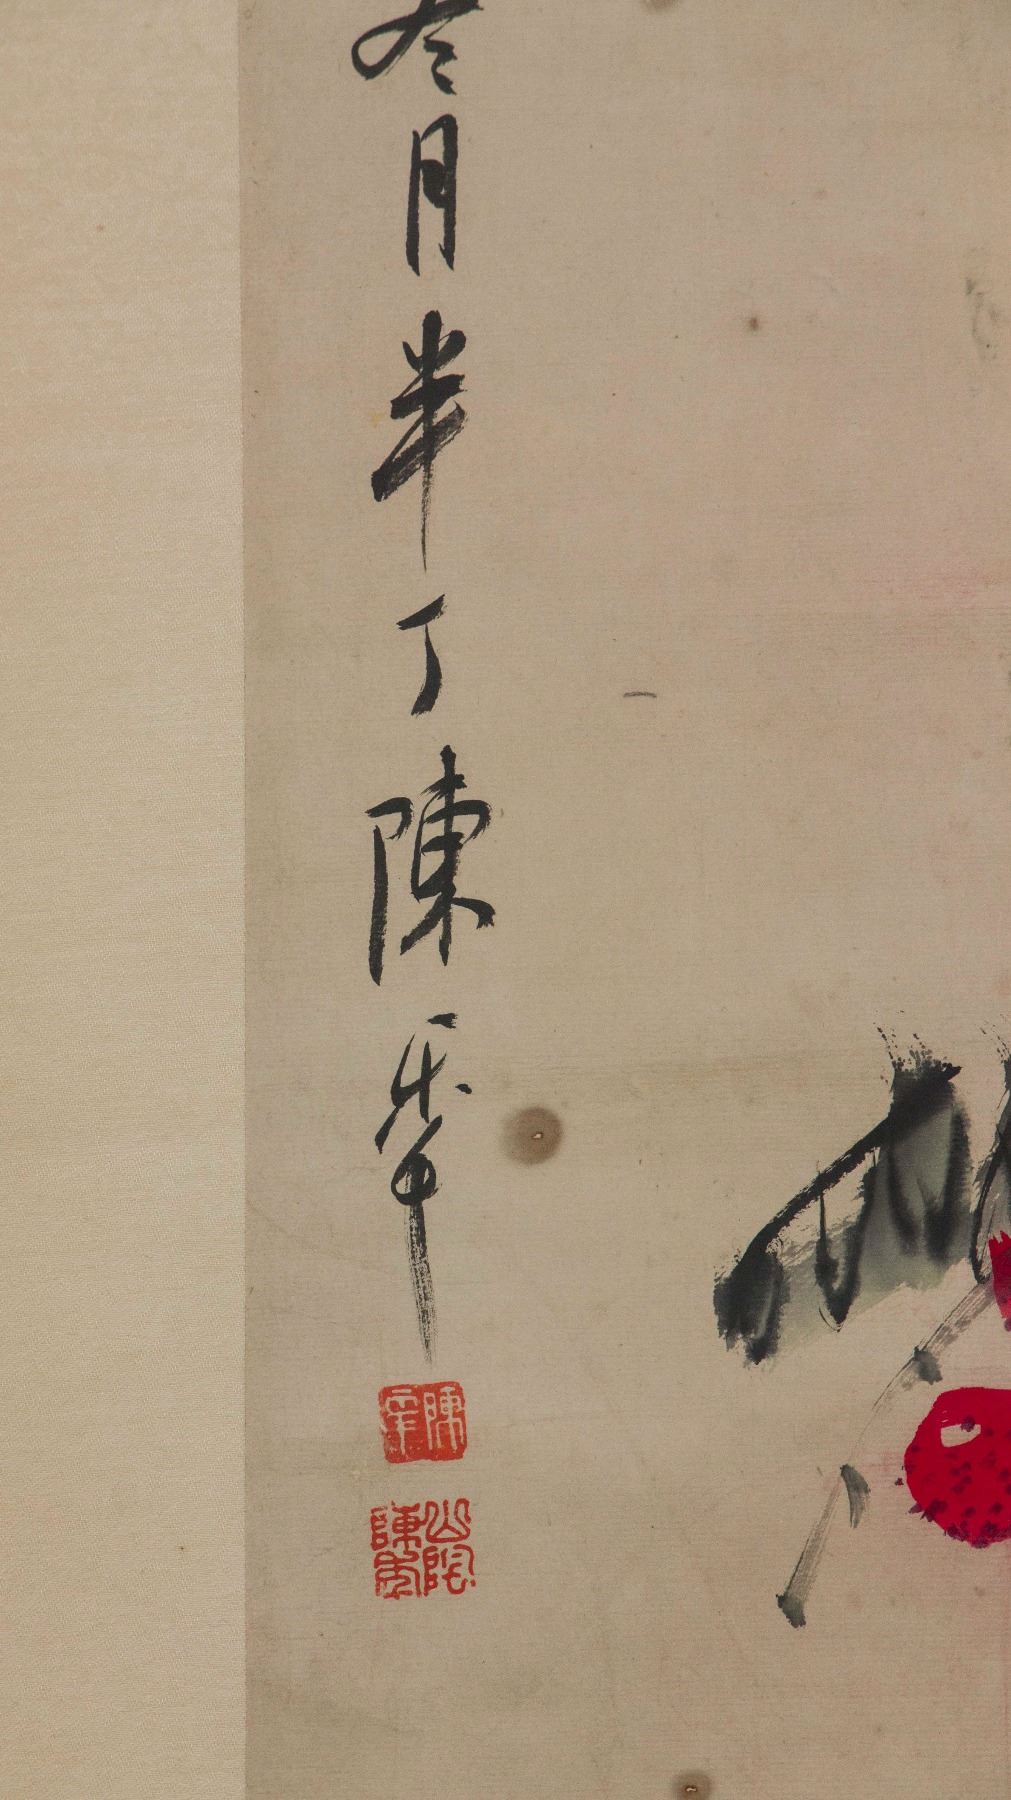 冬月半丁陳秊
陳年
山陰陳年